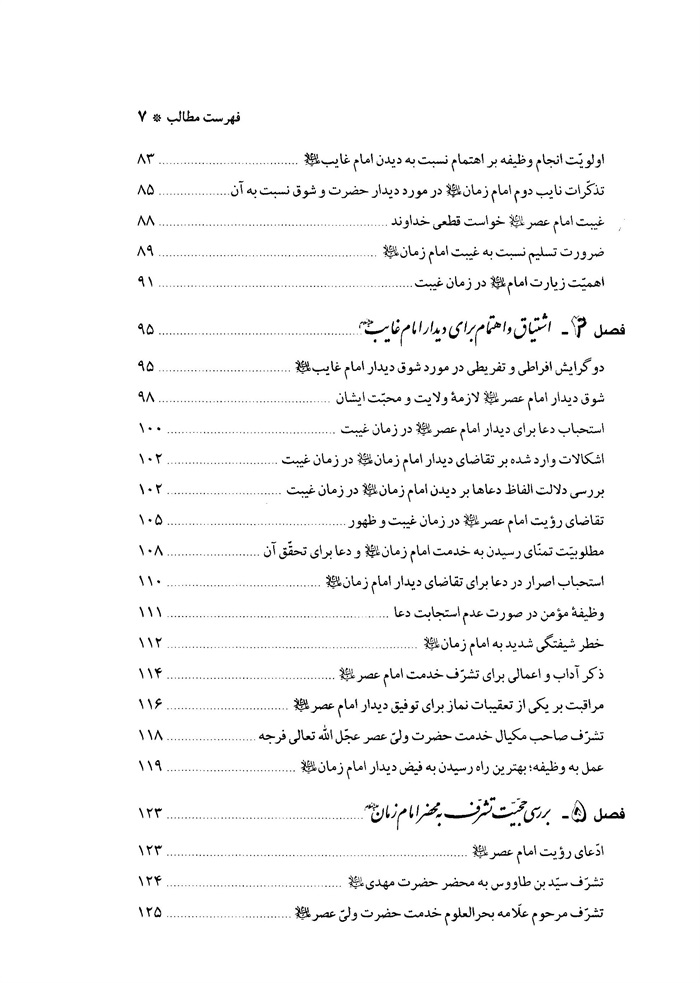 فهرست مطالب * ۷
اولویّت انجام وظیفه بر اهتمام نسبت به دیدن امام غایب ........ ۸۳
تذکّرات نایب دوم امام زمان در مورد دیدار حضرت و شوق نسبت به آن ........ ۸۵
غیبت امام عصر خواست قطعی خداوند ........ ۸۸
ضرورت تسلیم نسبت به غیبت امام زمان ........ ۸۹
اهمیّت زیارت امام در زمان غیبت ........ ۹۱
فصل ۴ - اشتیاق و اهتمام برای دیدار امام غایب ........ ۹۵
دو گرایش افراطی و تفریطی در مورد شوق دیدار امام غایب ........ ۹۵
شوق دیدار امام عصر لازمهٔ ولایت و محبّت ایشان ........ ۹۸
استحباب دعا برای دیدار امام عصر در زمان غیبت ........ ۱۰۰
اشکالات وارد شده بر تقاضای دیدار امام زمان در زمان غیبت ........ ۱۰۲
بررسی دلالت الفاظ دعاها بر دیدن امام زمان در زمان غیبت ........ ۱۰۲
تقاضای رؤیت امام عصر در زمان غیبت و ظهور ........ ۱۰۵
مطلوبیّت تمنّای رسیدن به خدمت امام زمان و دعا برای تحقّق آن ........ ۱۰۸
استحباب اصرار در دعا برای تقاضای دیدار امام زمان ........ ۱۱۰
وظیفهٔ مؤمن در صورت عدم استجابت دعا ........ ۱۱۱
خطر شیفتگی شدید به امام زمان ........ ۱۱۲
ذکر آداب و اعمالی برای تشرّف خدمت امام عصر ........ ۱۱۴
مراقبت بر یکی از تعقیبات نماز برای توفیق دیدار امام عصر ........ ۱۱۶
تشرّف صاحب مکیال خدمت حضرت ولیّ عصر عجّل الله تعالی فرجه ........ ۱۱۸
عمل به وظیفه؛ بهترین راه رسیدن به فیض دیدار امام زمان ........ ۱۱۹
فصل ۵ - بررسی حجّیّت تشرّف به محضر امام زمان ........ ۱۲۳
ادّعای رؤیت امام عصر ........ ۱۲۳
تشرّف سیّد بن طاووس به محضر حضرت مهدی ........ ۱۲۴
تشرّف مرحوم علّامه بحرالعلوم خدمت حضرت ولیّ عصر ........ ۱۲۵